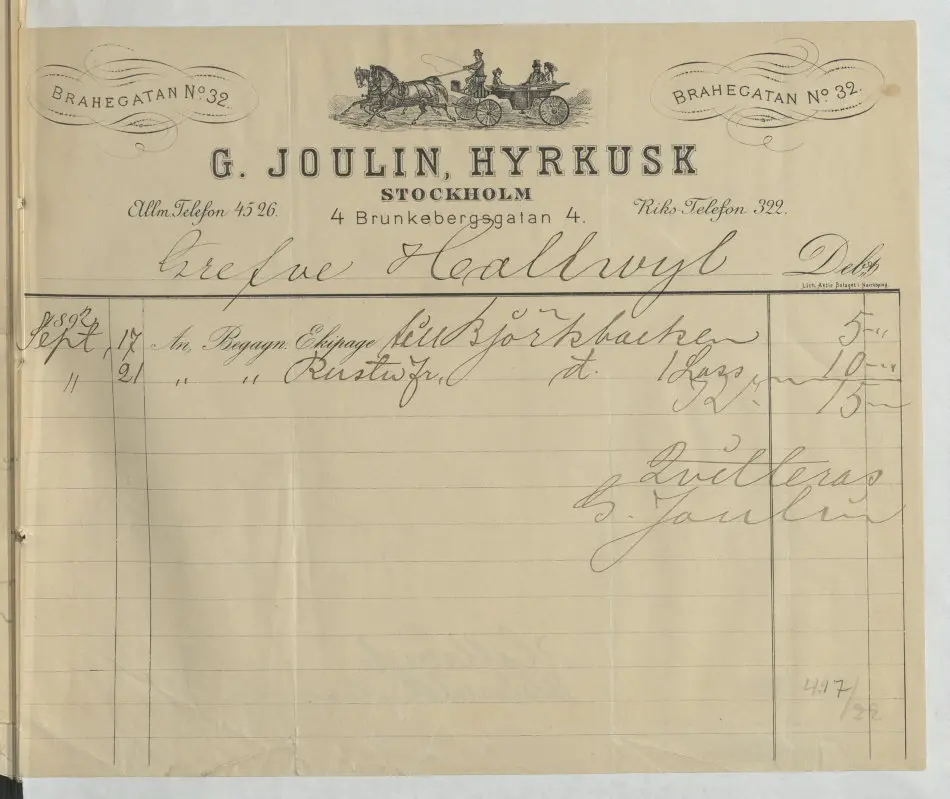 BRAHEGATAN No 32.
BRAHEGATAN No 32.
G. JOULIN, HYRKUSK
STOCKHOLM
Allm. Telefon 4526.
4 Brunkebergsgatan 4.
Riks-Telefon 322.
Grefve Hallwyl Debet
Lith. Aktie Bolaget i Norrköping.
1892
Sept. 17 An, Begagn. Ekipage till Björkbacken 5 "
" 21 " " d. 1 Lass 10 "
15
Qvitteras
G. Joulin
417/22